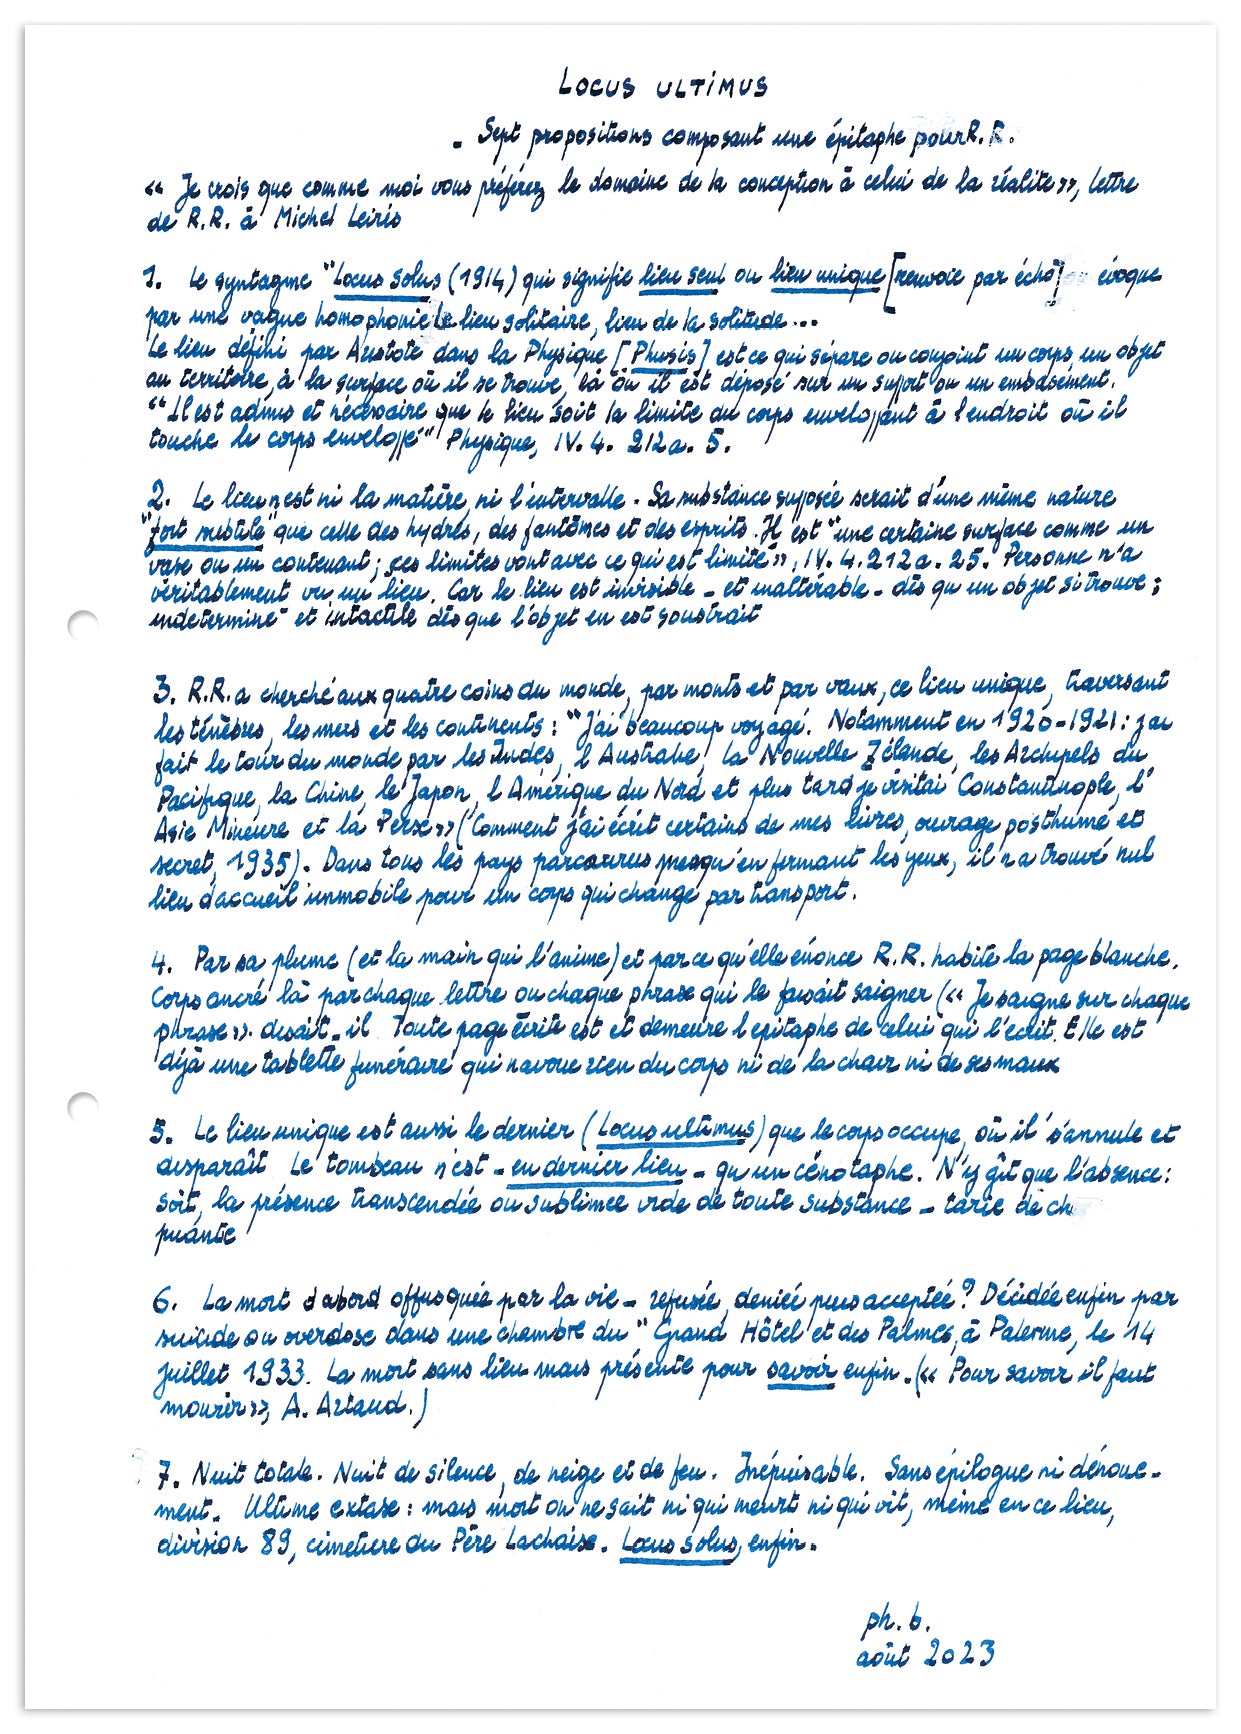 LOCUS ULTIMUS
- Sept propositions composant une épitaphe pour R.R.
« Je crois que comme moi vous préférez le domaine de la conception à celui de la réalité », lettre
de R.R. à Michel Leiris
1. Le syntagme "Locus Solus (1914) qui signifie lieu seul ou lieu unique [renvoie par écho] évoque
par une vague homophonie le lieu solitaire, lieu de la solitude...
Le lieu défini par Aristote dans la Physique [Phusis] est ce qui sépare ou conjoint un corps un objet
au territoire, à la surface où il se trouve, là où il est déposé sur un suport ou un embasement.
"Il est admis et nécessaire que le lieu soit la limite du corps enveloppant à l'endroit où il
touche le corps enveloppé" Physique, IV. 4. 212a. 5.
2. Le lieu n'est ni la matière, ni l'intervalle. Sa substance supposée serait d'une même nature
"fort subtile" que celle des hydres, des fantômes et des esprits. Il est "une certaine surface comme un
vase ou un contenant ; ses limites vont avec ce qui est limité », IV. 4. 212a. 25. Personne n'a
véritablement vu un lieu. Car le lieu est invisible - et inaltérable - dès qu'un objet s'i trouve ;
indeterminé et intactile dès que l'objet en est soustrait
3. R.R. a cherché aux quatre coins du monde, par monts et par vaux, ce lieu unique, traversant
les ténèbres, les mers et les continents : "J'ai beaucoup voyagé. Notamment en 1920-1921 : j'ai
fait le tour du monde par les Indes, l'Australie, la Nouvelle Zélande, les Archipels du
Pacifique, la Chine, le Japon, l'Amérique du Nord et plus tard je visitai Constantinople, l'
Asie Mineure et la Perse » (Comment j'ai écrit certains de mes livres, ouvrage posthume et
secret, 1935). Dans tous les pays parcourus presqu'en fermant les yeux, il n'a trouvé nul
lieu d'accueil immobile pour un corps qui change par transport.
4. Par sa plume (et la main qui l'anime) et par ce qu'elle énonce R.R. habite la page blanche.
Corps ancré là par chaque lettre ou chaque phrase qui le faisait saigner (« Je saigne sur chaque
phrase » disait-il Toute page écrite est et demeure l'epitaphe de celui qui l'écrit. Elle est
déjà une tablette funéraire qui n'avoue rien du corps ni de la chair ni de ses maux
5. Le lieu unique est aussi le dernier (Locus ultimus) que le corps occupe, où il s'annule et
disparaît Le tombeau n'est - en dernier lieu - qu'un cénotaphe. N'y gît que l'absence :
soit, la présence transcendée ou sublimée vide de toute substance - tarie de ch
puante
6. La mort d'abord offusquée par la vie - refusée, deniée puis acceptée ? Décidée enfin par
suicide ou overdose dans une chambre du "Grand Hôtel et des Palmes, à Palerme, le 14
juillet 1933. La mort sans lieu mais présente pour savoir enfin. (« Pour savoir il faut
mourir », A. Artaud.)
7. Nuit totale. Nuit de silence, de neige et de feu. Inépuisable. Sans épilogue ni dénoue-
ment. Ultime extase : mais mort on ne sait ni qui meurt ni qui vit, même en ce lieu,
division 89, cimetière du Père Lachaise. Locus Solus, enfin.
ph. b.
août 2023